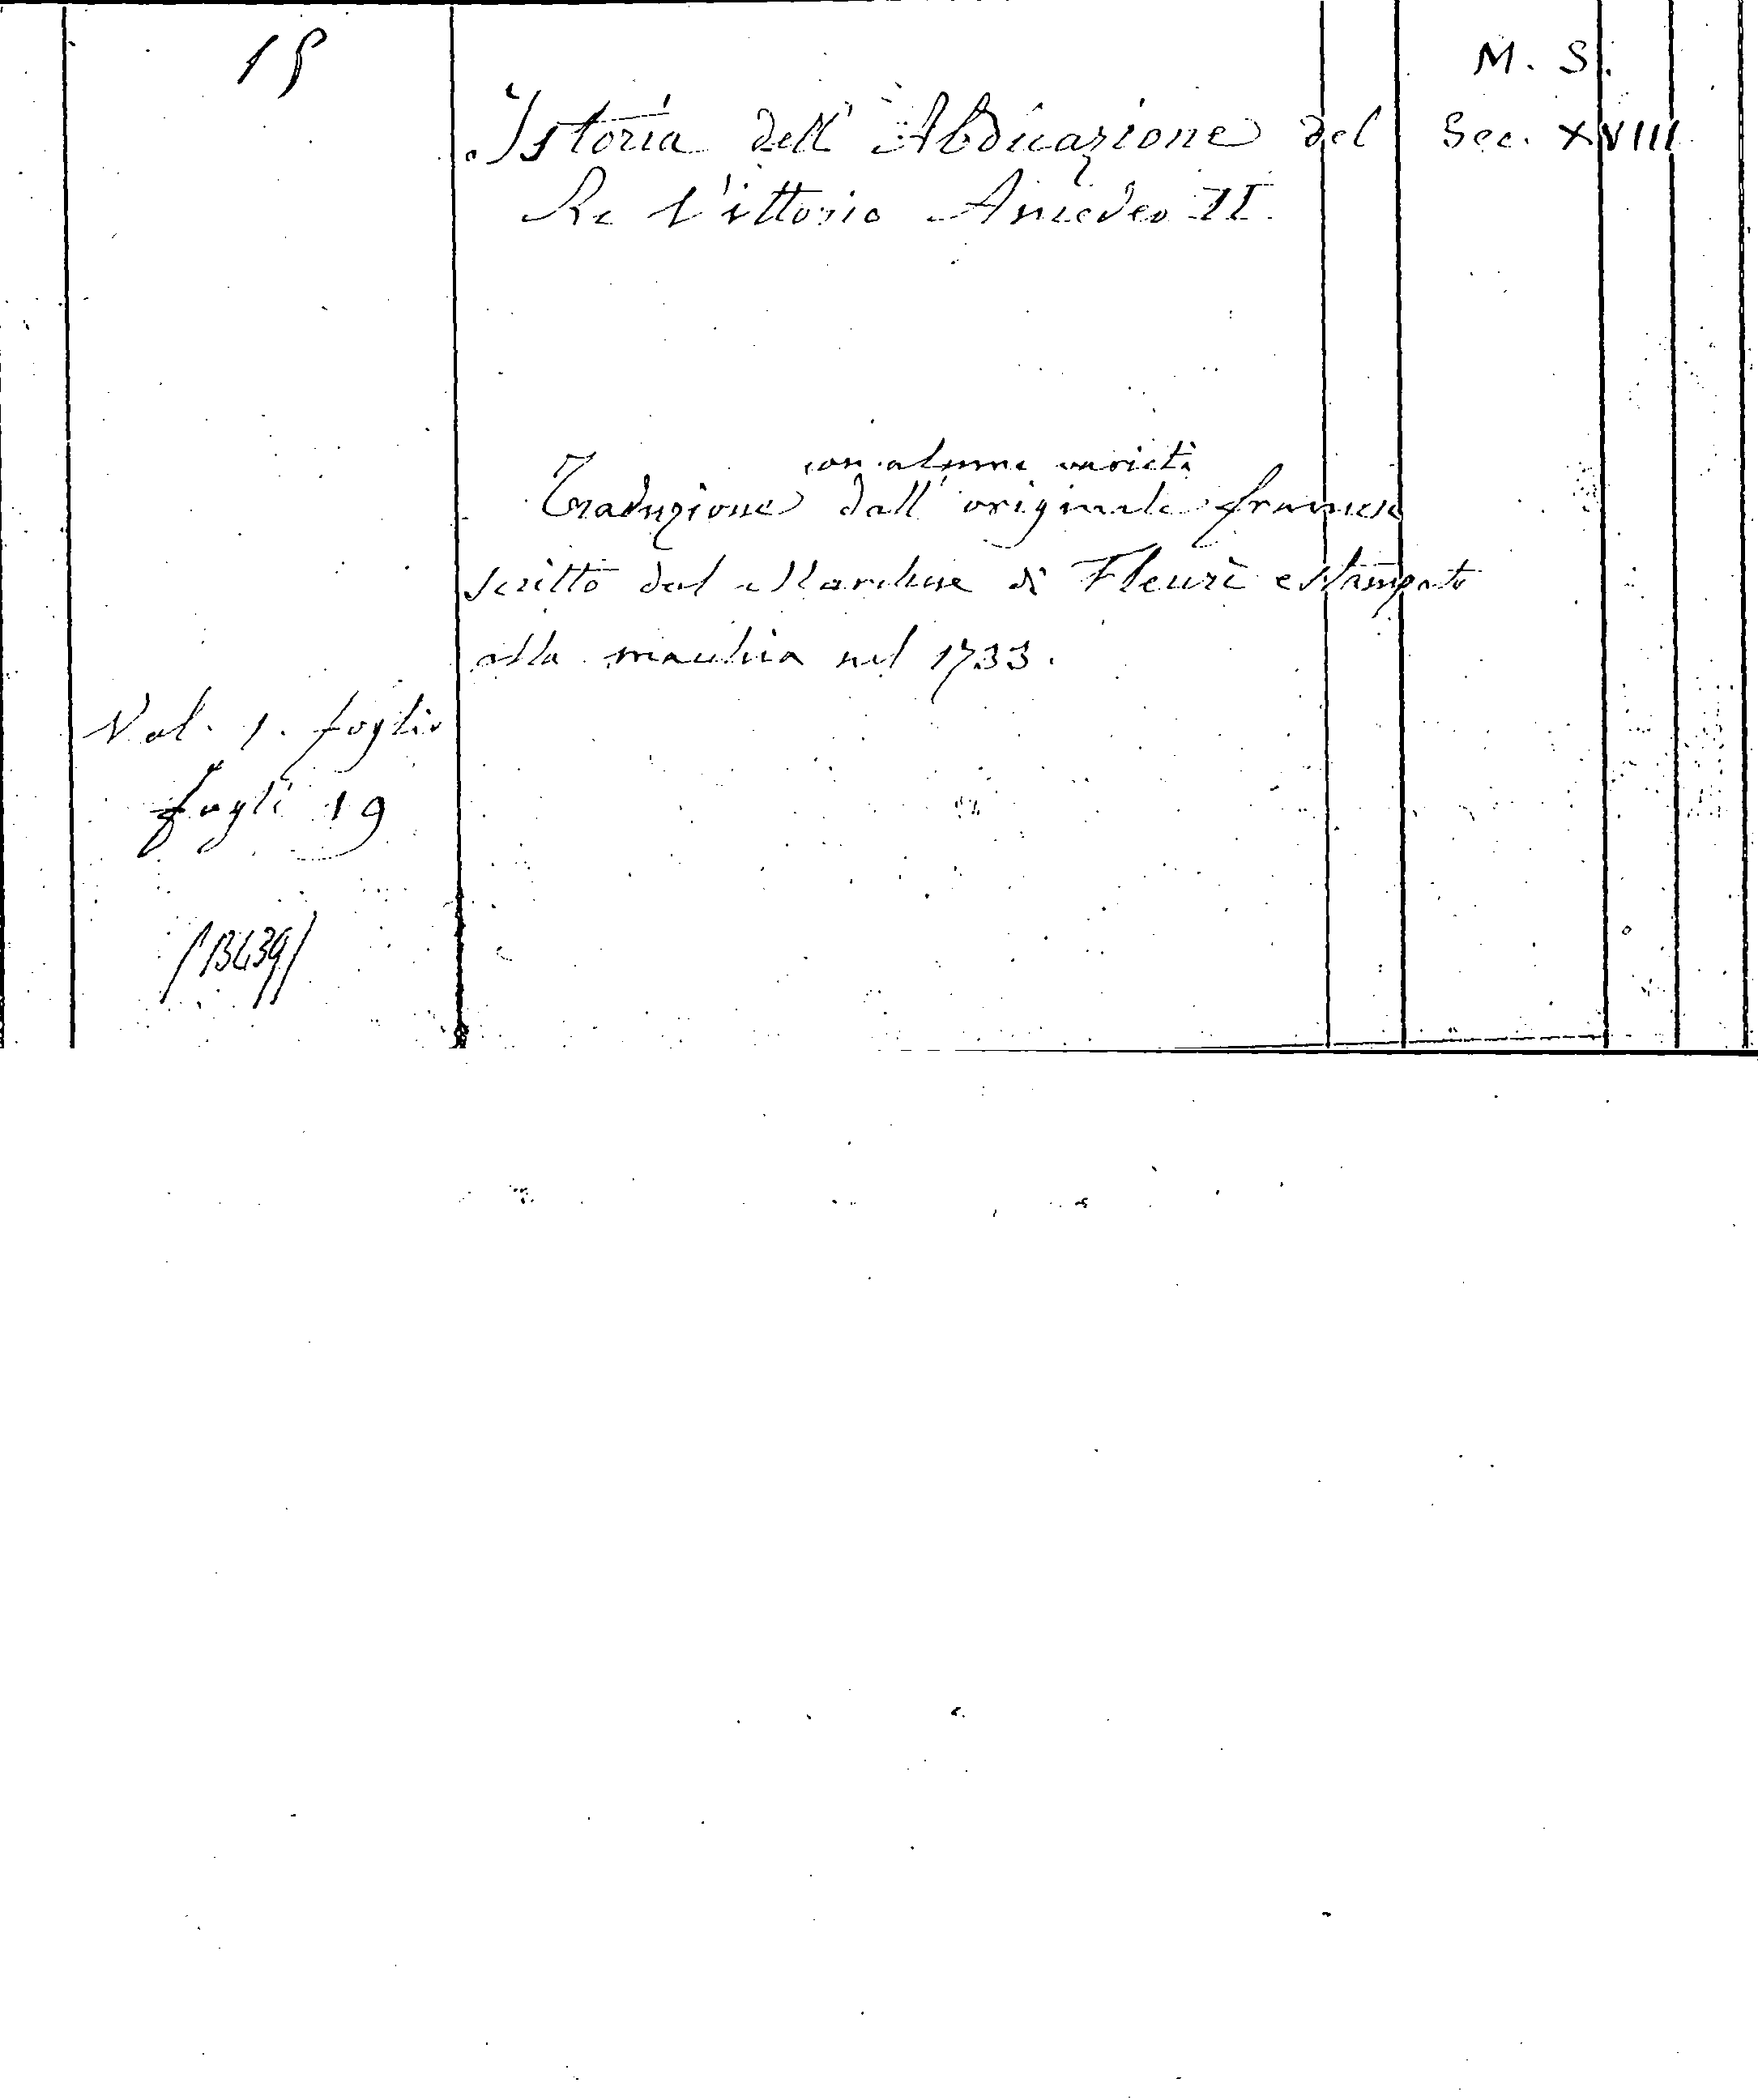 15
M. S.
Istoria dell' Abdicazione del Sec. XVIII
Re Vittorio Amedeo II.
con alcune varietà
Traduzione dall' originale francese
scritto dal Marchese di Fleurì e stampato
alla macchia nel 1733.
Vol. 1. foglio
fogli 19